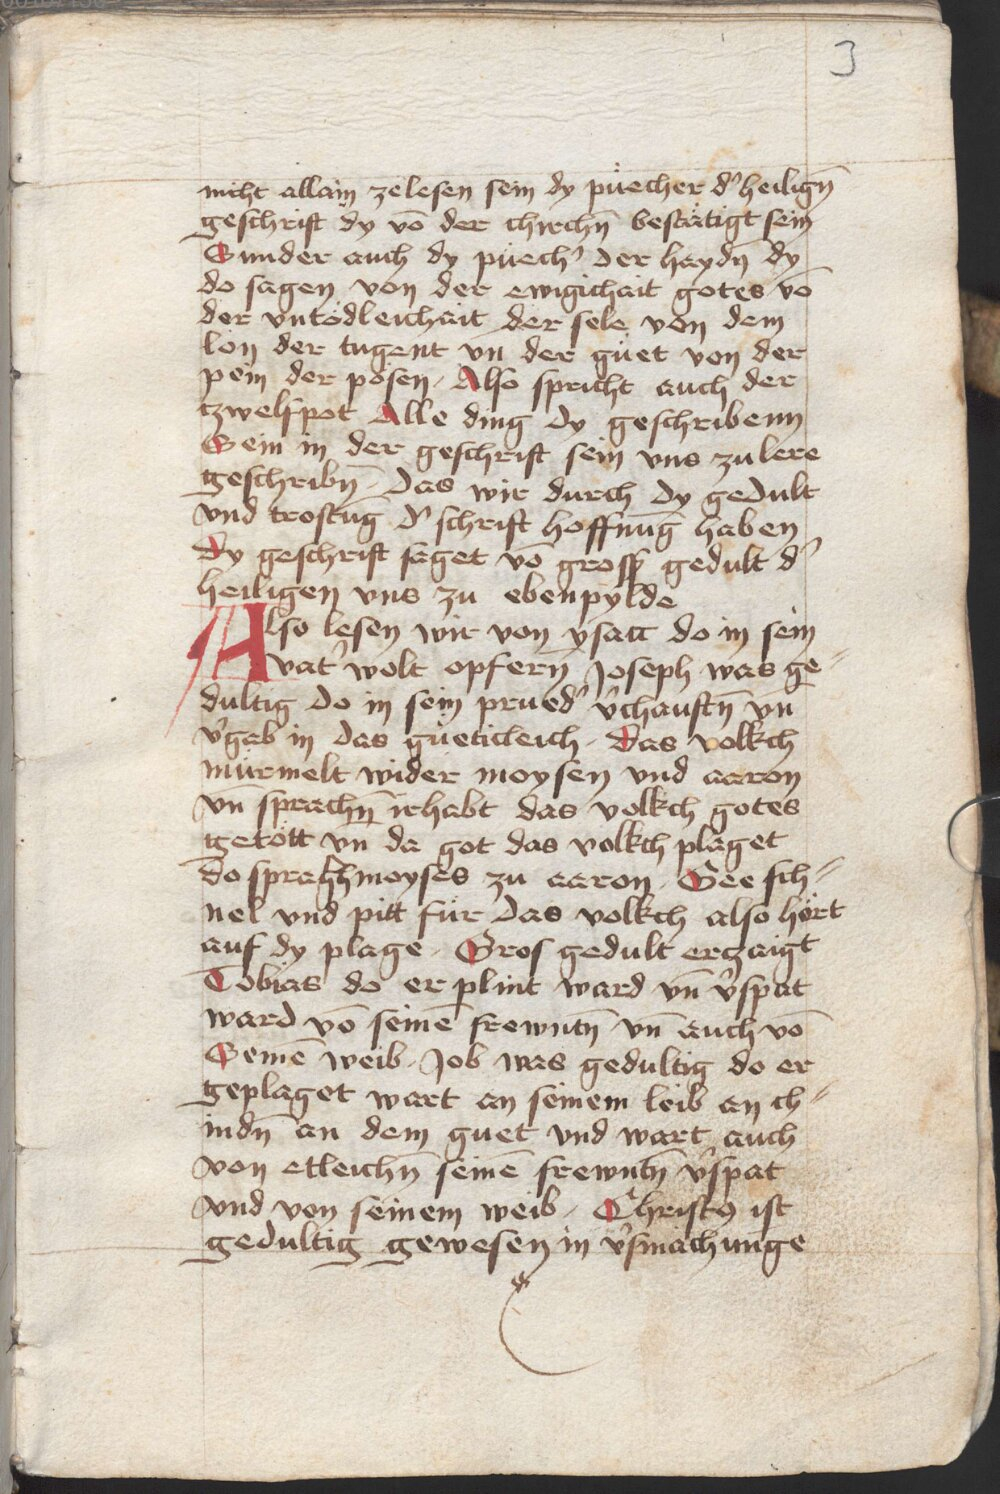 3
nicht allain zelesen sein dy püecher d' heilign̄
geschrift dy vō der chirchn̄ bestätigt sein
Sunder auch dy püech' der haydn̄ dy
do sagen von der ewigichait gotes vō
der vntödleichait der sele von dem
lon der tugent vn̄ der güet von der
pein der pösen. Also spricht auch der
tzwelfpot Alle ding dy geschribenn
Sein in der geschrift sein vns zu lere
geschribn̄. Das wir durch dy gedult
vnd trostūg d' schrift hoffnūg haben
Dy geschrift saget vō gross' gedult d'
heiligen vns zu ebenpylde
Also lesen wir von ysacc do in sein
vat' wolt opfern Joseph was ge=
dultig do in sein prued' v'chauftn̄ vn̄
v'gab in das güeticleich. Das volkch
mürmelt wider moysen vnd aaron
vn̄ sprachn̄ ir habt das volkch gotes
getött vn̄ da got das volkch plaget
do sprach moyses zu aaron. Gee sch=
nel vnd pitt für das volkch also hört
auf dy plage. Gros gedult erczaigt
Tobias do er plint ward vn̄ v'spat
ward vō seinē frewntn̄ vn̄ auch vō
Seinē weib. Job was gedultig do er
geplaget wart an seinem leib an ch=
indn̄ an dem guet vnd wart auch
von etleichn̄ seinē frewntn̄ v'spat
vnd von seinem weib. Christꝰ ist
gedultig gewesen in v'smächunge